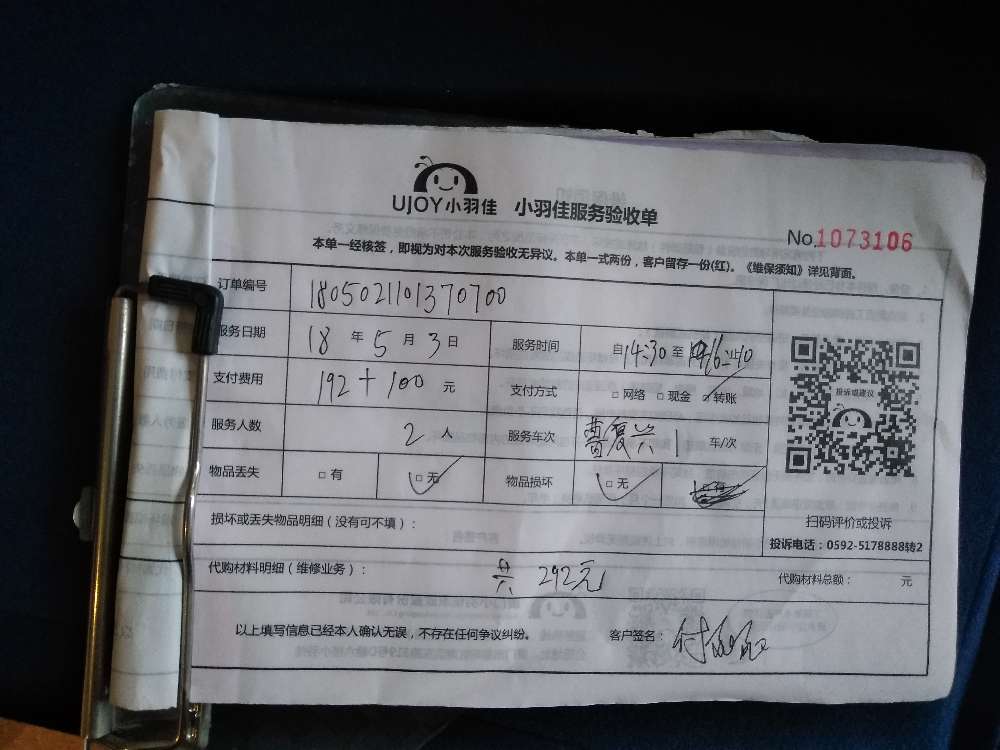 UJOY小羽佳 小羽佳服务验收单
No.1073106
本单一经核签，即视为对本次服务验收无异议。本单一式两份，客户留存一份(红)。《维保须知》详见背面。
订单编号 1805021101370700
服务日期 18 年 5 月 3 日 服务时间 自14:30至16:40
支付费用 192+100 元 支付方式 □网络 □现金 ☑转账
服务人数 2 人 服务车次 曹复兴 1 车/次
物品丢失 □有 □无 物品损坏 □无 □有
投诉或建议
扫码评价或投诉
投诉电话：0592-5178888转2
损坏或丢失物品明细（没有可不填）：
代购材料明细（维修业务）： 共 292元 代购材料总额： 元
以上填写信息已经本人确认无误，不存在任何争议纠纷。 客户签名： 付